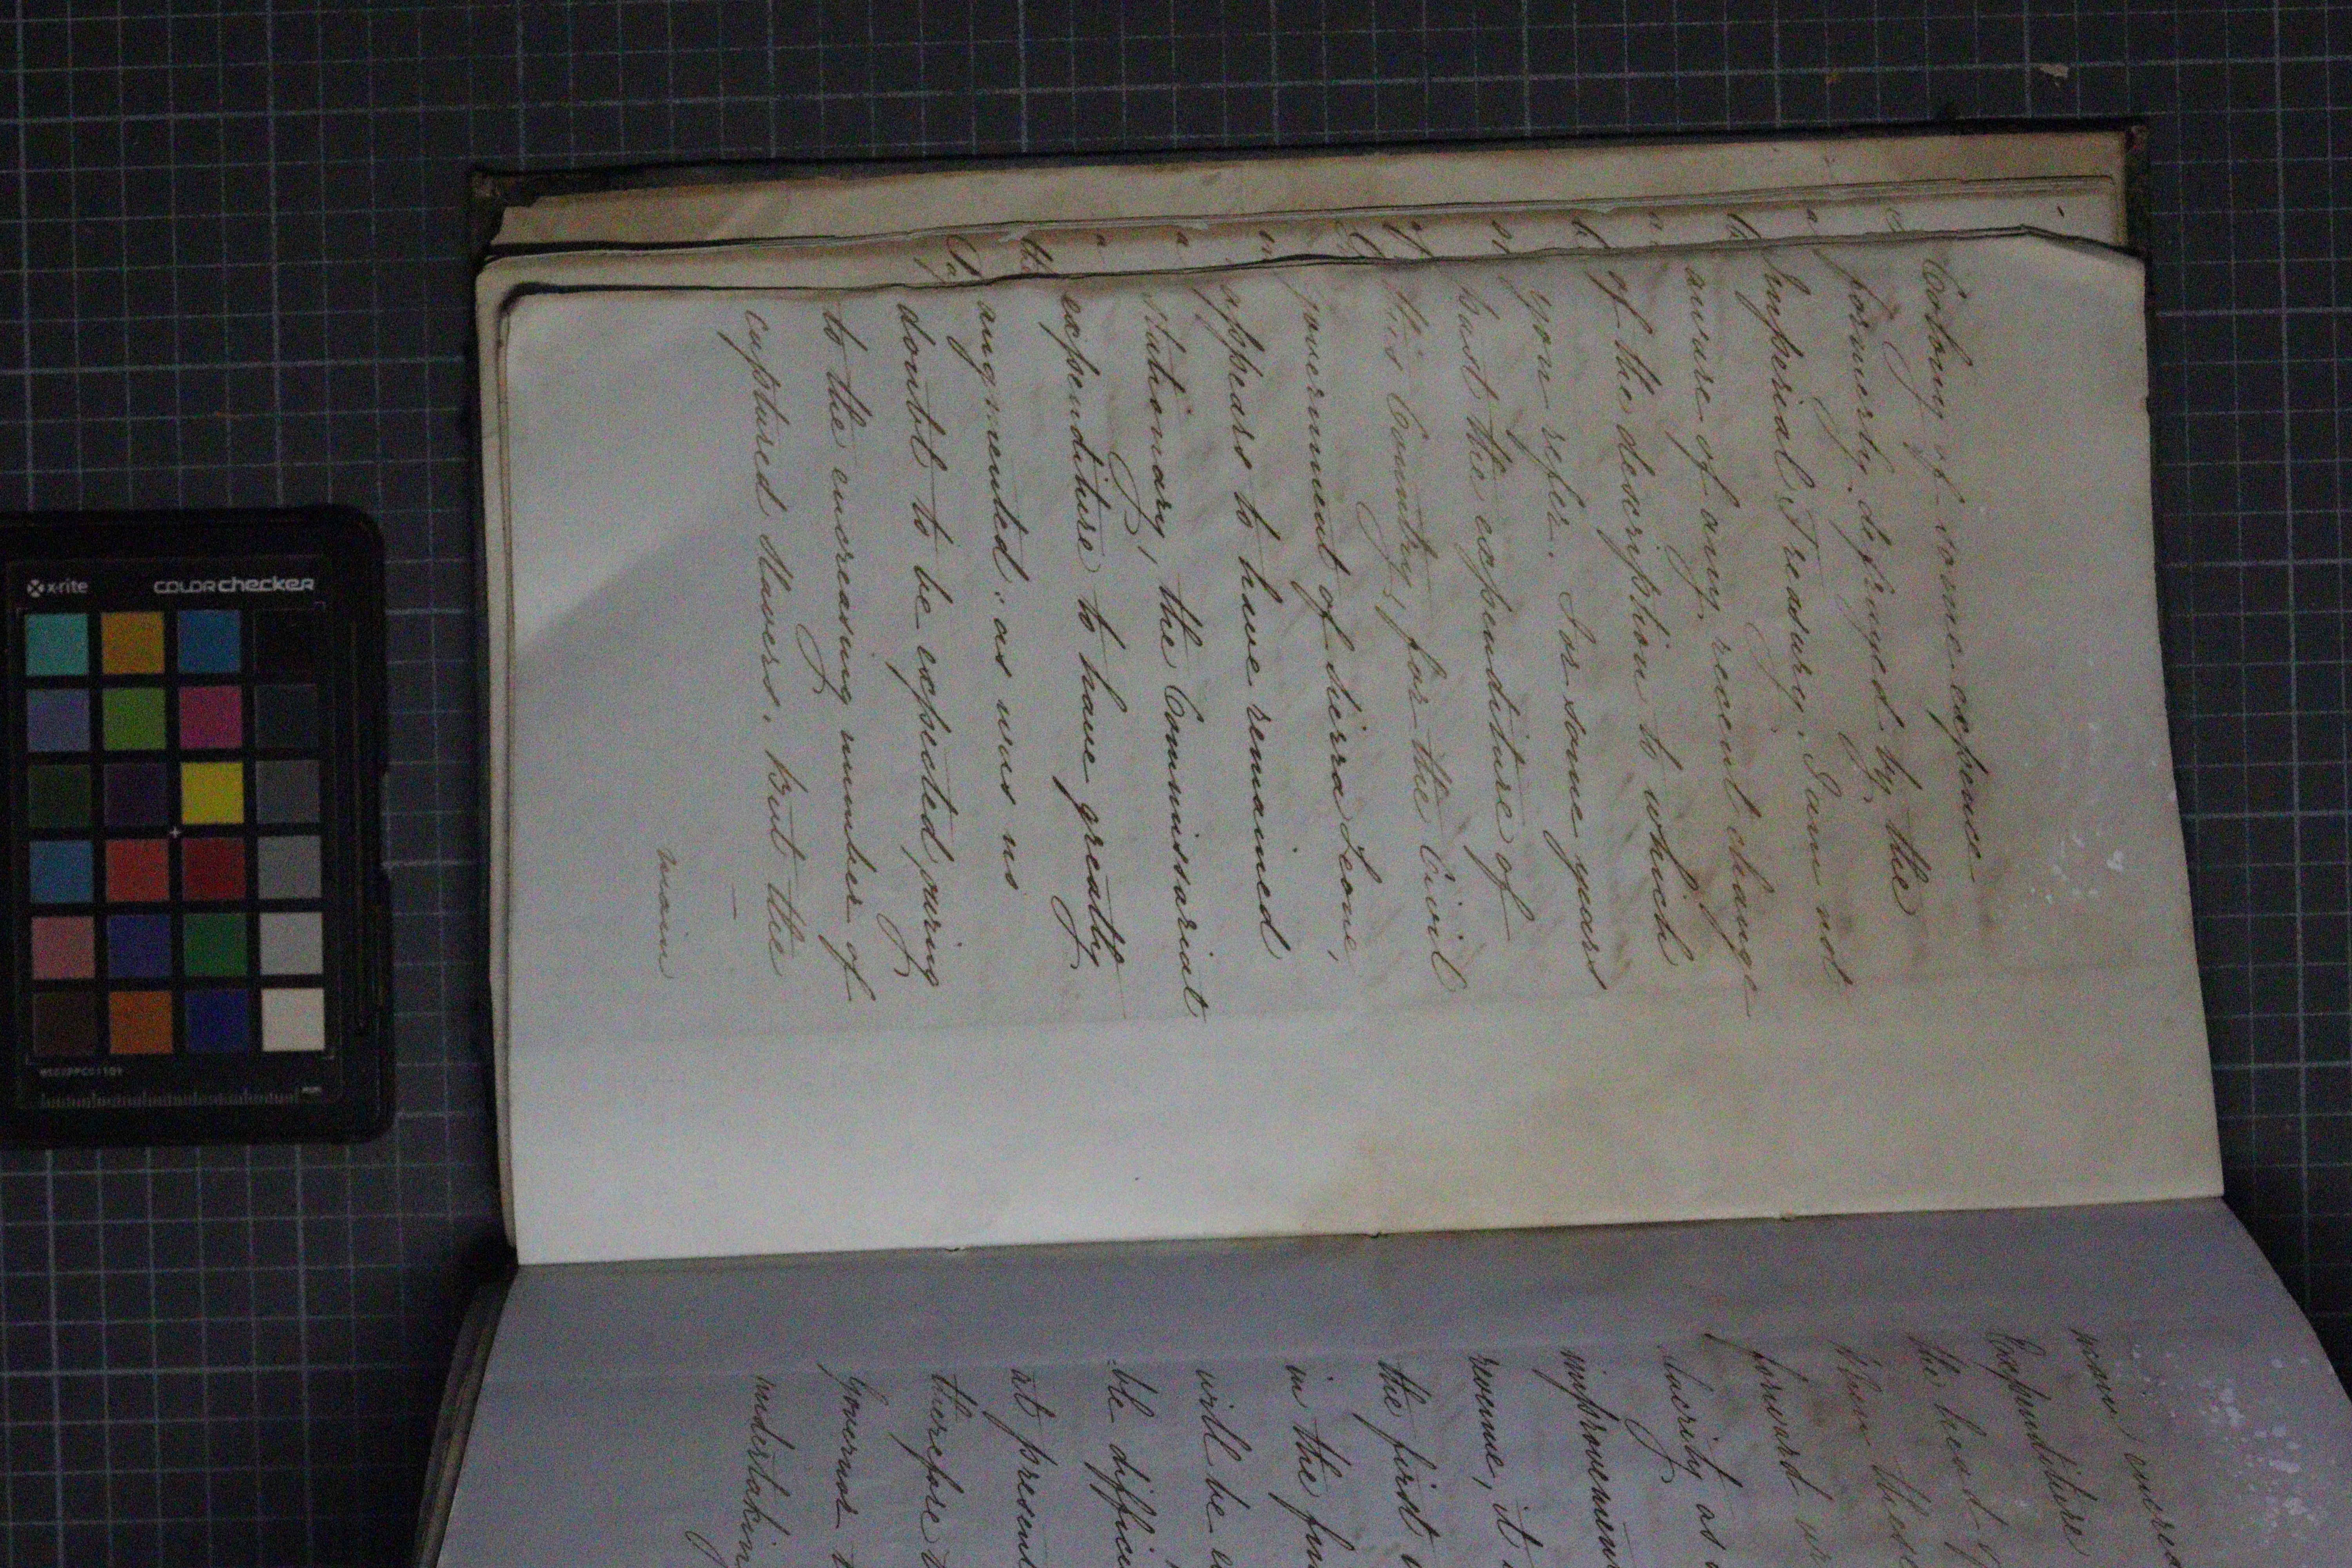 Colony of some expence
formerly defrayed by the
Imperial Treasury. I am not
aware of any recent change
of the description to which
you refer. For some years
past the expenditure of
this Country, for the Civil
government of Sierra Leone,
appears to have remained
stationary, the Commissariat
expenditure to have greatly
augmented, as was no
doubt to be expected, owing
to the encreasing number of
captured slavers. But the
main
main encre
Expenditure
the head of
When these
forward
alacrity as
improvemen
revenue, it
the first
in the fun
will be
ble difficu
at present
therefore
Governor
undertakin
x-rite
COLORchecker